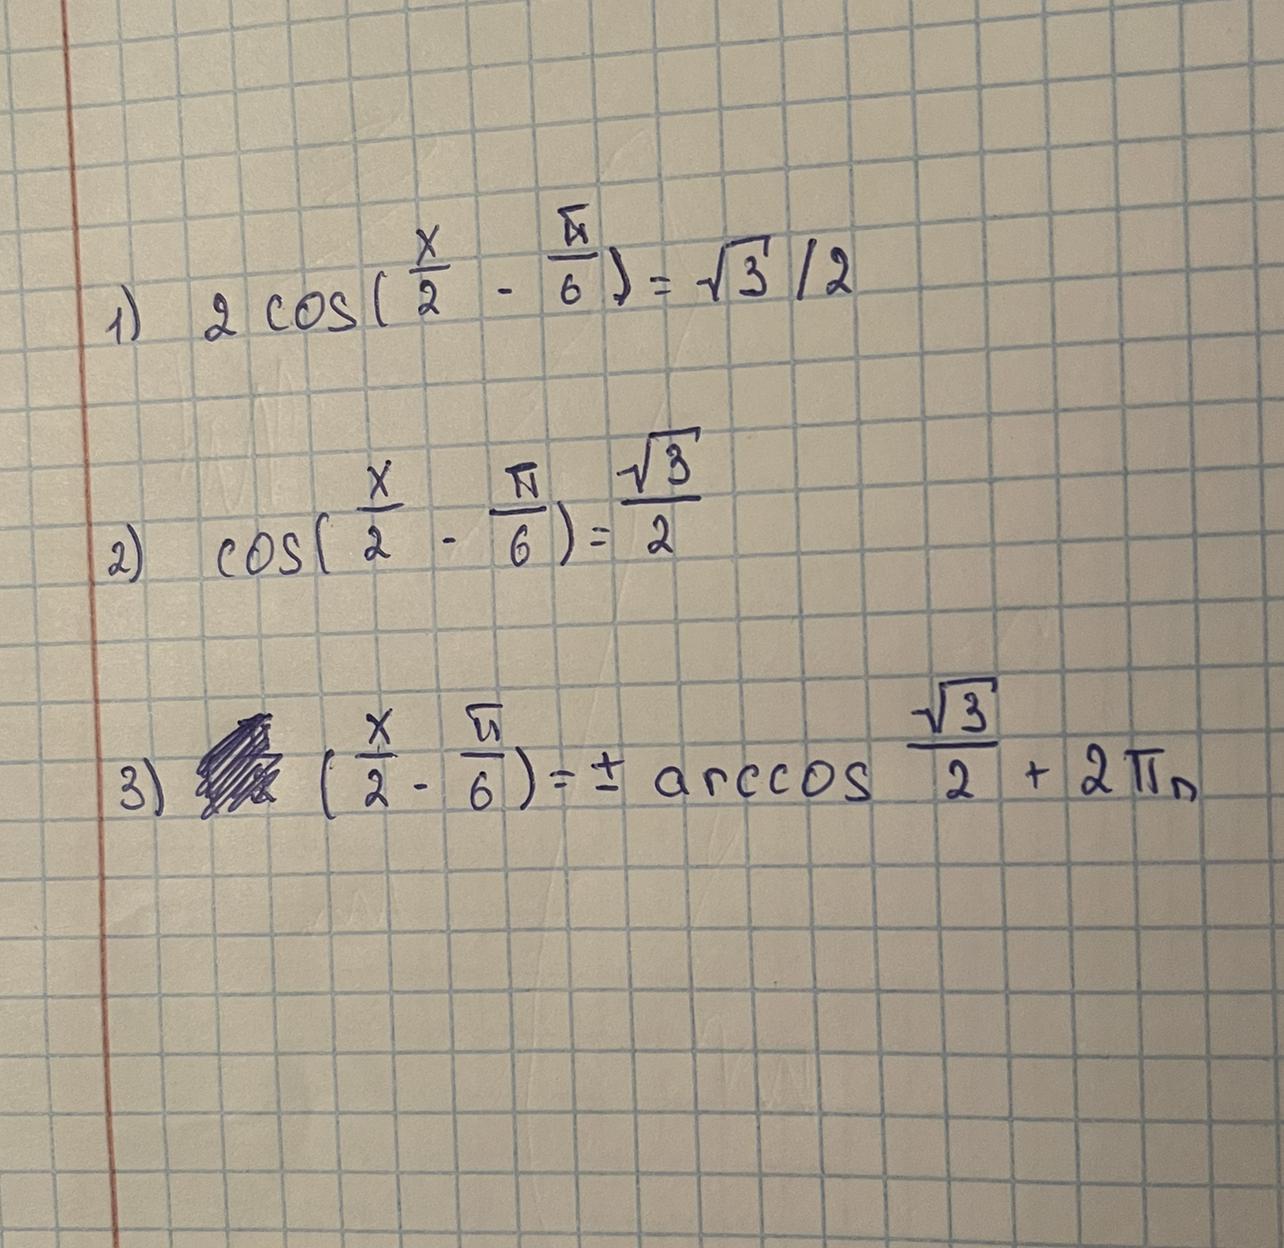 1) 2 cos( x/2 - π/6 ) = √3 / 2
2) cos( x/2 - π/6 ) = √3/2
3) ( x/2 - π/6 ) = ± arccos √3/2 + 2πn